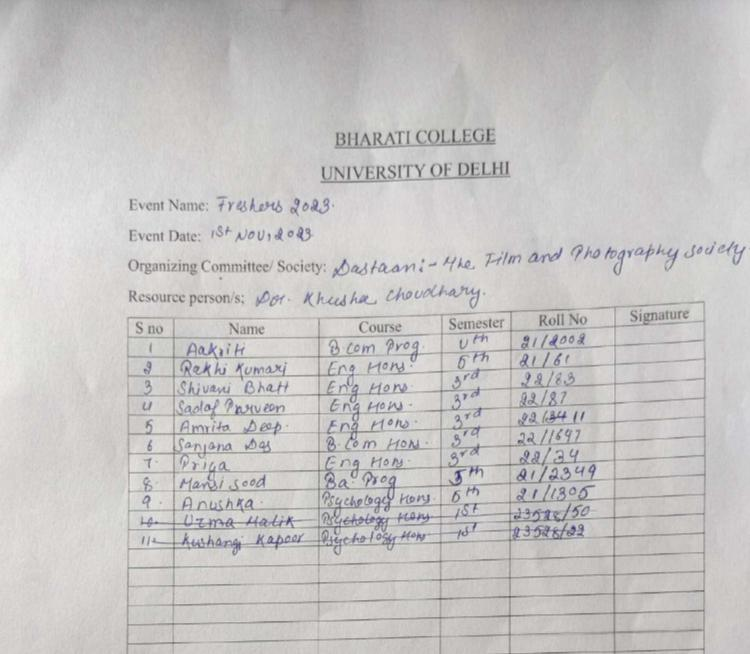 BHARATI COLLEGE
UNIVERSITY OF DELHI
Event Name: Freshers 2023.
Event Date: 1st Nov, 2023
Organizing Committee/ Society: Dastaan:- the Film and Photography society
Resource person/s: Dr. Khusha Choudhary.
S no Name Course Semester Roll No Signature
1 Aakriti B Com Prog. 21/2002
2 Rakhi Kumari Eng Hons. 5th 21/61
3 Shivani Bhatt Eng Hons. 3rd 22/83
4 Sadaf Parveen Eng Hons. 3rd 22/87
5 Amrita Deep. Eng Hons. 3rd
6 Sanjana Das B.Com Hons. 3rd 22/1697
7. Priya Eng Hons. 3rd 22/34
8. Mansi Sood Ba. Prog 5th 21/2349
9. Anushka. Psychology Hons. 5th 21/1305
10. Uzma Malik Psychology Hons. 1st 23528/50
11. Kushangi Kapoor Psychology Hons 1st 23528/22